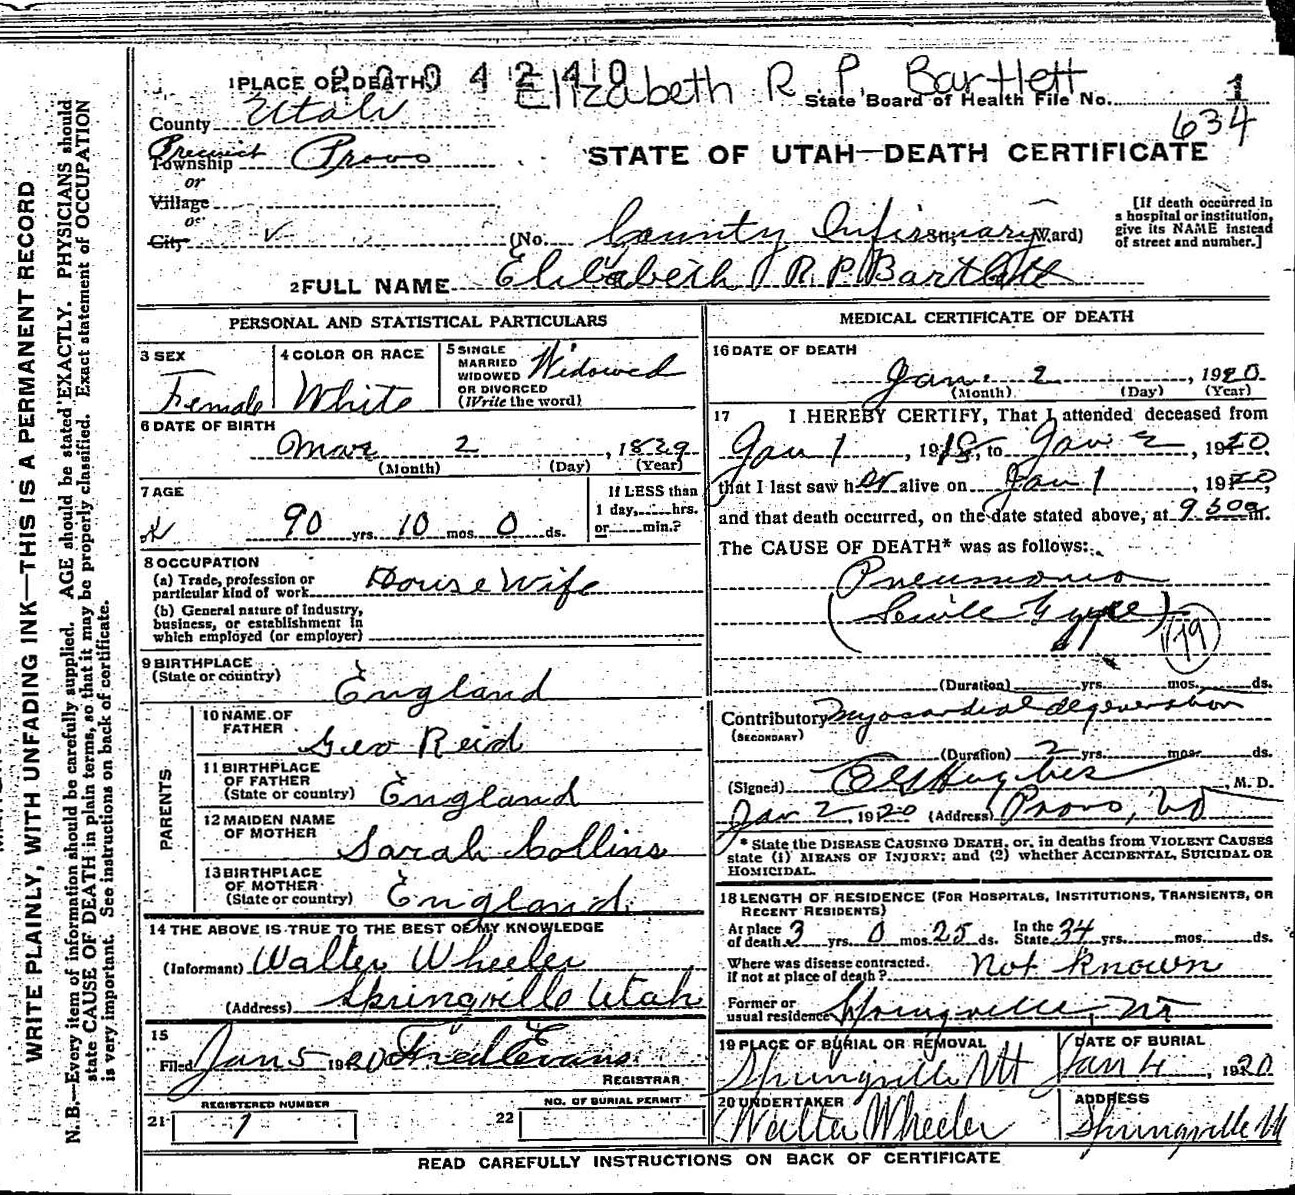 2004240
Elizabeth R. P. Bartlett
1 PLACE OF DEATH
State Board of Health File No. 1
County Utah
634
Precinct
Township Provo
STATE OF UTAH—DEATH CERTIFICATE
or
Village
or
City √
(No. County Infirmary St.; Ward)
[If death occurred in
a hospital or institution,
give its NAME instead
of street and number.]
2 FULL NAME Elizabeth R P Bartlett
PERSONAL AND STATISTICAL PARTICULARS
3 SEX
Female
4 COLOR OR RACE
White
5 SINGLE
MARRIED
WIDOWED
OR DIVORCED
(Write the word)
Widowed
6 DATE OF BIRTH
Mar 2, 1829
(Month) (Day) (Year)
7 AGE
90 yrs. 10 mos. 0 ds.
If LESS than
1 day, hrs.
or min.?
8 OCCUPATION
(a) Trade, profession or
particular kind of work House Wife
(b) General nature of industry,
business, or establishment in
which employed (or employer)
9 BIRTHPLACE
(State or country) England
PARENTS
10 NAME OF
FATHER Geo Reid
11 BIRTHPLACE
OF FATHER
(State or country) England
12 MAIDEN NAME
OF MOTHER Sarah Collins
13 BIRTHPLACE
OF MOTHER
(State or country) England
14 THE ABOVE IS TRUE TO THE BEST OF MY KNOWLEDGE
(Informant) Walter Wheeler
(Address) Springville Utah
15
Filed Jan 5 1920 Fred Evans
REGISTRAR
REGISTERED NUMBER
21 1
NO. OF BURIAL PERMIT
22
MEDICAL CERTIFICATE OF DEATH
16 DATE OF DEATH
Jan. 2, 1920
(Month) (Day) (Year)
17 I HEREBY CERTIFY, That I attended deceased from
Jan 1, 1918, to Jan 2, 1920
that I last saw her alive on Jan 1, 1920,
and that death occurred, on the date stated above, at 9 30a m.
The CAUSE OF DEATH* was as follows:
Pneumonia
(Senile Type)
179
(Duration) yrs. mos. ds.
Contributory Myocardial degeneration
(SECONDARY)
(Duration) 2 yrs. mos. ds.
(Signed) Hughes, M. D.
Jan 2, 1920 (Address) Provo,
* State the DISEASE CAUSING DEATH, or, in deaths from VIOLENT CAUSES
state (1) MEANS OF INJURY; and (2) whether ACCIDENTAL, SUICIDAL OR
HOMICIDAL.
18 LENGTH OF RESIDENCE (FOR HOSPITALS, INSTITUTIONS, TRANSIENTS, OR
RECENT RESIDENTS)
At place
of death 3 yrs. 0 mos. 25 ds. In the
State 34 yrs. mos. ds.
Where was disease contracted.
if not at place of death? Not known
Former or
usual residence Springville, Ut
19 PLACE OF BURIAL OR REMOVAL
Springville Ut
DATE OF BURIAL
Jan 4, 1920
20 UNDERTAKER
Walter Wheeler
ADDRESS
Springville U
READ CAREFULLY INSTRUCTIONS ON BACK OF CERTIFICATE
WRITE PLAINLY, WITH UNFADING INK—THIS IS A PERMANENT RECORD
N. B.—Every item of information should be carefully supplied. AGE should be stated EXACTLY. PHYSICIANS should
state CAUSE OF DEATH in plain terms, so that it may be properly classified. Exact statement of OCCUPATION
is very important. See instructions on back of certificate.